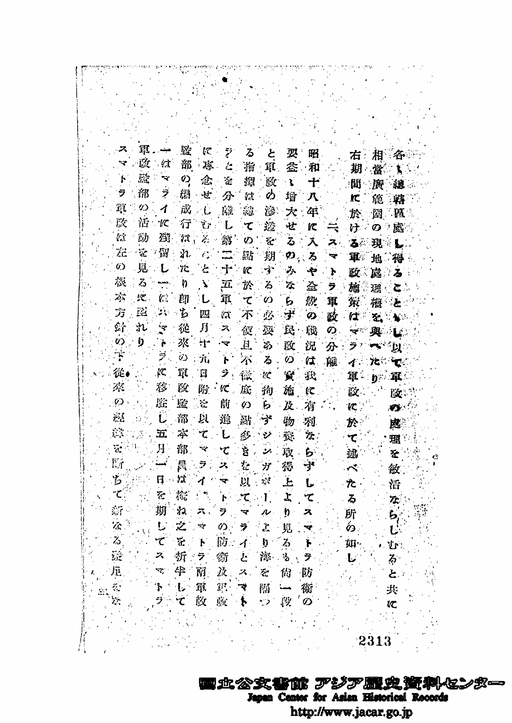 各々總轄區處し得ることゝし以て軍政の處理を敏活ならしむると共に
相當廣範圍の現地處理權を與へたり
右期間に於ける軍政施策はマライ軍政に於て述べたる所の如し
二、スマトラ軍政の分離
昭和十八年に入るや全般の戰況は我に有利ならずしてスマトラ防衛の
要益々增大せるのみならず民政の實施及物資取得上より見るも尚一段
と軍政の滲透を期するの必要あるに拘らずシンガポールより海を隔つ
る指揮は總ての點に於て不便且不徹底の點多きを以てマライとスマト
ラとを分離し第二十五軍はスマトラに前進してスマトラの防衛及軍政
に專念せしむることゝし四月十九日附を以てマライ、スマトラ兩軍政
監部の編成行はれたり即ち從來の軍政監部本部員は概ね之を折半して
一はマライに殘留し一はスマトラに移駐し五月一日を期してスマトラ
軍政監部の活動を見るに至れり
スマトラ軍政は左の根本方針の下從來の を斷ちて新なる 足を
2313
国立公文書館 アジア歴史資料センター
Japan Center for Asian Historical Records
http://www.jacar.go.jp